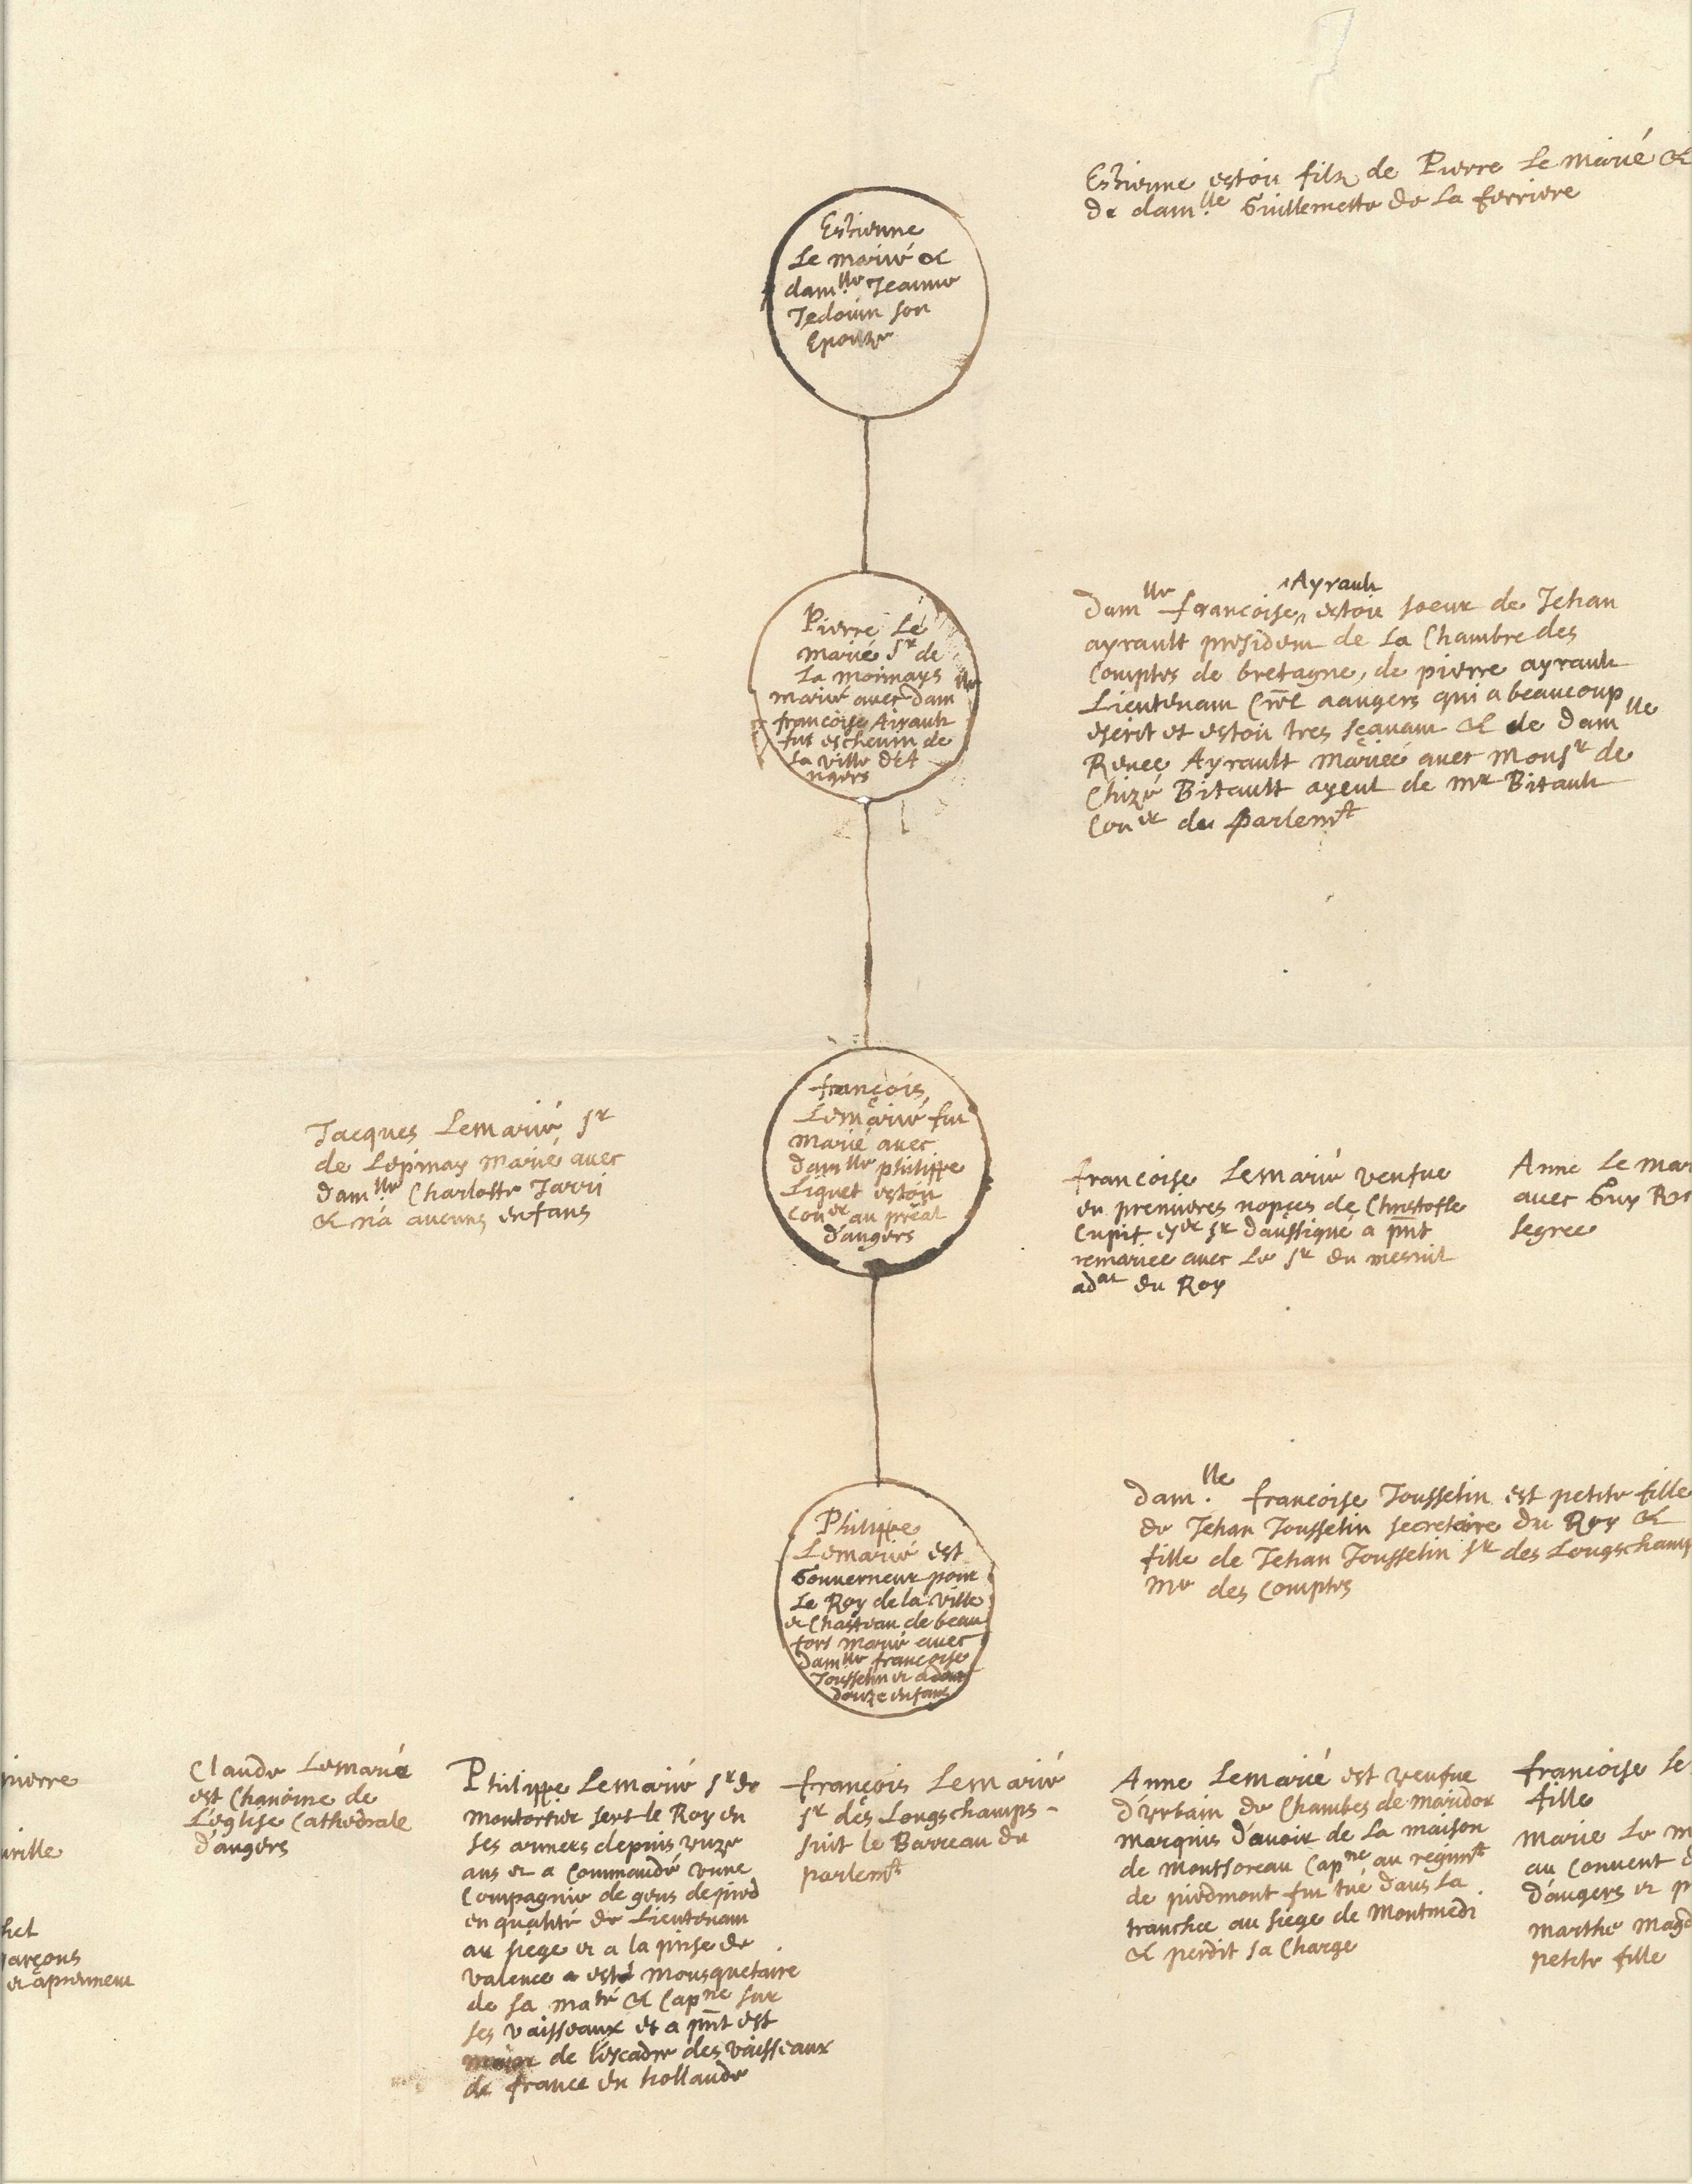 Estienne estoit filz de Pierre Le Marié &
de dam.lle Guillemette de La ferriere
Estienne
Le marié &
dam.lle Jeanne
Jedoüin son
Epouze
damlle francoise Ayrault estoit soeur de Jehan
ayrault president de La Chambre des
Comptes de bretagne, de pierre ayrault
Lieutenant Crel aangers qui a beaucoup
escrit et estoit tres sçauant & de damlle
Renee Ayrault Mariée auec Monsr de
Chizé Bitault ayeul de mr Bitault
Coner du Parlemt
Pierre Le
marié Sr de
La monnays
marié auec damlle
francoise Airault
fut escheuin de
la ville d'A
ngers
françois
Lemarié fut
Marié auec
damlle philippe
Liquet estoit
coner au preal
d'angers
Jacques Lemarié Sr
de Lepinay Marié auec
dam.lle Charlotte Jarri
& n'a aucuns enfans
francoise Lemarié veufue
en premieres nopces de Christofle
Cupif eser sr daussigné a pnt
remariee auec Le Sr du mesnil
adat du Roy
Anne Le mar
auec Guy
segree
dam.lle francoise Jousselin est petite fille
de Jehan Jousselin secretaire du Roy &
fille de Jehan Jousselin sr des Longschamp
Mre des Comptes
Philippe
Lemarié est
Gouuerneur pour
Le Roy de la Ville
et Chasteau de beau
fort Marié auec
damlle francoise
Jousselin et a
douze enfans
pierre
uille
hel
garçons
et aprennent
Claude Lemarié
est Chanoine de
L'eglise Cathedrale
d'angers
Philippe Lemarié Sr de
Montortier sert le Roy en
ses armees depuis unze
ans et a Commandé vune
Compagnie de gens de pied
en qualité de Lieutenant
au siege et a la prise de
valence a esté Mousquetaire
de sa maté & Capne sur
ses vaisseaux et a pnt est
major de l'escadre des vaisseaux
de france en hollande
françois Lemarié
Sr des Longschamps
suit le Barreau du
parlemt
Anne Lemarié est veufue
d'vrbain de Chambes de maridor
Marquis d'auoir de La maison
de Montsoreau Capne au regimt
de piedmont fut tué dans La
tranchee au siege de Montmedi
& perdit sa Charge
francoise Le
fille
Marie Le m
au Conuent d
d'angers et p
Marthe Magd
petite fille